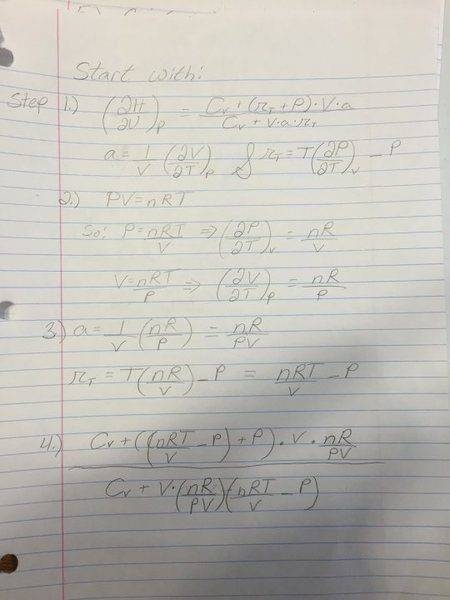 Start with:
Step 1.) (∂H/∂U)_P = (C_v + (π_T + P)·V·a)/(C_v + V·a·π_T)
a = 1/V (∂V/∂T)_P & π_T = T(∂P/∂T)_V - P
2.) PV = nRT
So: P = nRT/V ⇒ (∂P/∂T)_V = nR/V
V = nRT/P ⇒ (∂V/∂T)_P = nR/P
3.) a = 1/V (nR/P) = nR/PV
π_T = T(nR/V) - P = nRT/V - P
4.) (C_v + ((nRT/V - P) + P)·V·nR/PV)/(C_v + V·(nR/PV)(nRT/V - P))